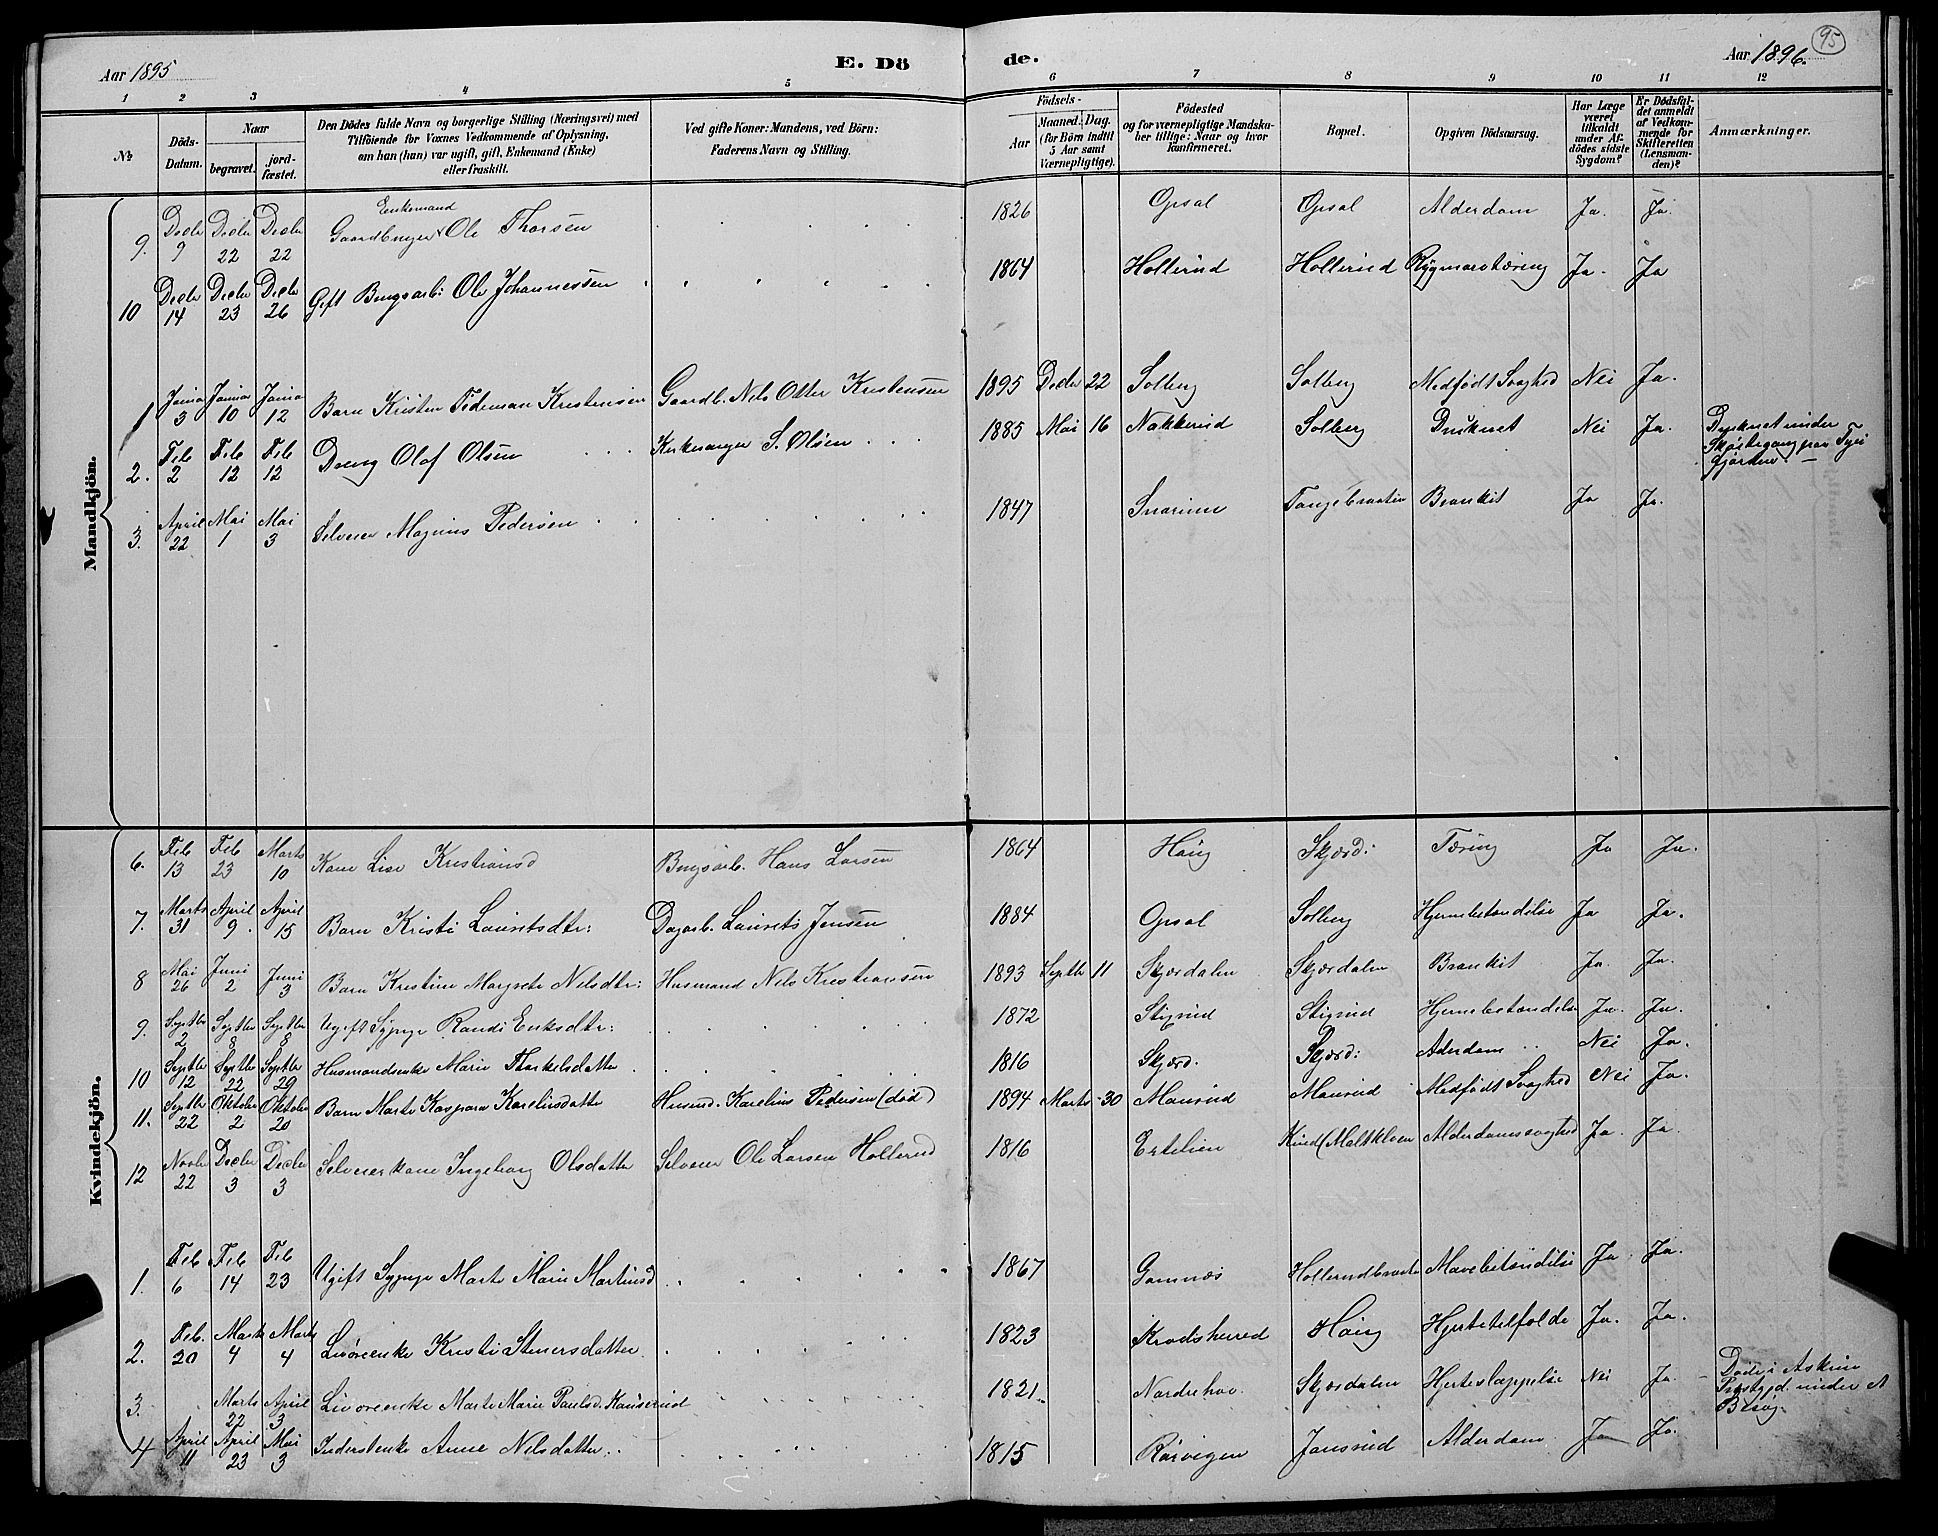 Aar 1895
E. Dö
de.
Aar 1896.
95
1 2 3 4 5 6 7 8 9 10 11 12
№
Döds-Datum.
Naar
begravet.
jord-fæstet.
Den Dödes fulde Navn og borgerlige Stilling (Næringsvei) med
Tilföiende for Voxnes Vedkommende af Oplysning,
om han (hun) var ugift, gift, Enkemand (Enke)
eller fraskilt.
Ved gifte Koner: Mandens, ved Börn:
Faderens Navn og Stilling.
Födsels-
Aar
Maaned. Dag.
(for Börn indtil
5 Aar samt
Værnepligtige).
Födested
og for værnepligtige Mandska-
ber tillige: Naar og hvor
konfirmeret.
Bopæl.
Opgiven Dödsaarsag.
Har Læge
været
tilkaldt
under Af-
dödes sidste
Sygdom?
Er Dödsfal-
det anmeldt
af Vedkom-
mende for
Skifteretten
(Lensman-
den)?
Anmærkninger.
Mandkjön.
9. Decbr 9 Decbr 22 Decbr 22 Enkemand Gaardbruger Ole Thorsen 1826 Opsal Opsal Alderdom Ja. Ja.
10 Decbr 14 Decbr 23 Decbr 26 Gift Brugsarb: Ole Johannessen 1864 Hollerud Hollerud Rygmarvstæring Ja. Ja
1 Januar 3 Januar 10 Januar 12 Barn Kristen Tideman Kristensen Gaardb. Nels Otter Kristensen 1895 Decbr 22 Solberg Solberg Medfödt Svaghed Nei Ja.
2. Feb 2 Feb 12 Feb 12 Dreng Olaf Olsen Kirkesanger S. Olsen 1885 Mai 16 Nakkerud Solberg Druknet Nei Ja. Druknet under
Skøitegang paa Tyri
fjorden.
3. April 22 Mai 1 Mai 3 Selveier Magnus Pedersen 1847 Snarum Tangebraaten Bronkit Ja Ja.
Kvindekjön.
6. Feb 13 Feb 23 Marts 10 Kone Lise Kristiansd Brugsarb. Hans Larsen 1864 Haug Skjærd: Tæring Ja Ja.
7. Marts 31 April 9. April 15 Barn Kristi Lauritsdtr: Dagarb. Laurits Jensen 1884 Opsal Solberg Hjernebetændelse Ja Ja.
8 Mai 26 Juni 2 Juni 3 Barn Kristine Margrete Nelsdtr: Husmand Nels Kristiansen 1893 Septbr 11 Skjærdalen Skjærdalen Bronkit Ja. Ja.
9. Septbr 2 Septbr 8 Septbr 8 Ugift Sypige Randi Eriksdtr: 1872 Stigrud Stigrud Hjernebetændelse Ja. Ja.
10 Septbr 12 Septbr 22 Septbr 29 Husmandsenke Marie Thorkelsdatter 1816 Skjærd. Skjærd: Aderdom Nei Ja.
11. Septbr 22 Oktober 2 Oktober 20 Barn Marte Kaspara Karelinsdatter Husmd. Karelius Pedersen (död) 1894 Marts 30 Maurud Maurud Medfödt Svaghed Nei Ja.
12 Novbr 22 Decbr 3 Decbr 3 Selveierkone Ingeborg Olsdatter Selveier Ole Larsen Hollerud 1816 Ertelien Alderdomssvaghed Ja. Ja.
1. Feb 6 Feb 14 Feb 23 Ugift Sypige Marte Marie Martinsd 1867 Gomnæs Hollerudbraaten Mavebetændelse Ja. Ja.
2. Feb. 20 Marts 4 Marts 4 Livöreenke Kristi Stenersdatter 1823 Krodsherred Haug Hjertetilfælde Ja. Ja.
3. Marts 22 April 3 Livöreenke Marte Marie Paulsd. 1821 Norderhov Skjærdalen Hjerteslappelse Nei Ja. Döde i Askim
Præstgjd. under et
Besøg.
4 April 11 April 23 Mai 3 Inderstenke Anne Nelsdatter 1815 Rörvigen Jonsrud Alderdom Ja Ja.